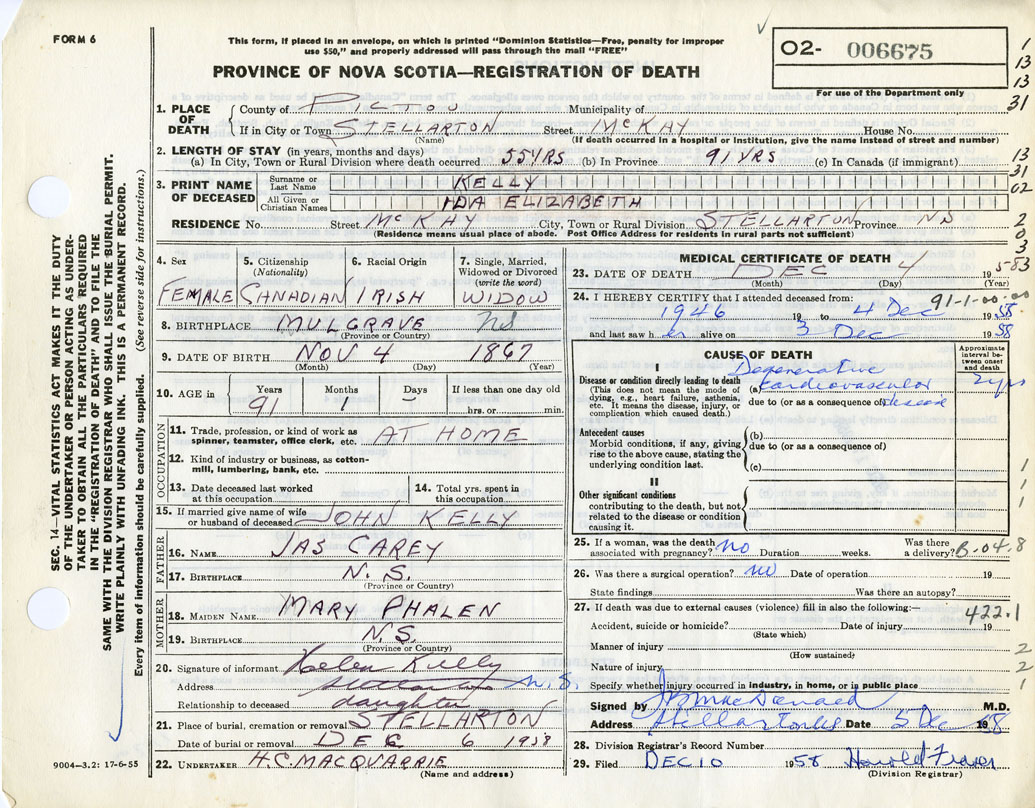 FORM 6
This form, if placed in an envelope, on which is printed "Dominion Statistics—Free, penalty for improper
use $50," and properly addressed will pass through the mail "FREE"
O2- 006675
PROVINCE OF NOVA SCOTIA—REGISTRATION OF DEATH
For use of the Department only
1
13
13
31
1. PLACE OF DEATH
County of PICTOU Municipality of
If in City or Town STELLARTON Street MCKAY House No.
(Name) (If death occurred in a hospital or institution, give the name instead of street and number)
2. LENGTH OF STAY (in years, months and days)
(a) In City, Town or Rural Division where death occurred 55 YRS (b) In Province 91 YRS (c) In Canada (if immigrant)
13
31
02
3. PRINT NAME OF DECEASED
Surname or Last Name KELLY
All Given or Christian Names IDA ELIZABETH
RESIDENCE No. Street MCKAY City, Town or Rural Division STELLARTON Province NS
(Residence means usual place of abode. Post Office Address for residents in rural parts not sufficient)
2
0
3
583
4. Sex FEMALE
5. Citizenship (Nationality) CANADIAN
6. Racial Origin IRISH
7. Single, Married, Widowed or Divorced (write the word) WIDOW
8. BIRTHPLACE MULGRAVE NS
(Province or Country)
9. DATE OF BIRTH NOV 4 1867
(Month) (Day) (Year)
10. AGE in Years 91 Months 1 Days - If less than one day old hrs. or min.
OCCUPATION
11. Trade, profession, or kind of work as
spinner, teamster, office clerk, etc. AT HOME
12. Kind of industry or business, as cotton-
mill, lumbering, bank, etc.
13. Date deceased last worked
at this occupation
14. Total yrs. spent in
this occupation
15. If married give name of wife
or husband of deceased JOHN KELLY
FATHER
16. NAME JAS CAREY
17. BIRTHPLACE N.S.
(Province or Country)
MOTHER
18. MAIDEN NAME MARY PHALEN
19. BIRTHPLACE N.S.
(Province or Country)
20. Signature of informant Helen Kelly
Address Stellarton N.S.
Relationship to deceased daughter
21. Place of burial, cremation or removal STELLARTON
Date of burial or removal DEC 6 1958
22. UNDERTAKER H.C. MACQUARRIE
(Name and address)
MEDICAL CERTIFICATE OF DEATH
23. DATE OF DEATH DEC 4 195
(Month) (Day) (Year)
24. I HEREBY CERTIFY that I attended deceased from: 91-1-00-00
1946 19 to 4 Dec 1958
and last saw her alive on 3 Dec 1958
CAUSE OF DEATH
Approximate interval between onset and death
I
Disease or condition directly leading to death
(This does not mean the mode of
dying, e.g., heart failure, asthenia,
etc. It means the disease, injury, or
complication which caused death.)
(a) Degenerative cardiovascular disease 2 yrs
due to (or as a consequence of)
Antecedent causes
Morbid conditions, if any, giving
rise to the above cause, stating the
underlying condition last.
(b)
due to (or as a consequence of)
(c)
II
Other significant conditions
contributing to the death, but not
related to the disease or condition
causing it.
1
1
1
25. If a woman, was the death
associated with pregnancy? no Duration weeks. Was there
a delivery? B.04.8
26. Was there a surgical operation? no Date of operation 19
State findings Was there an autopsy?
27. If death was due to external causes (violence) fill in also the following:—
422.1
Accident, suicide or homicide? Date of injury 19
(State which)
Manner of injury 2
(How sustained)
Nature of injury 2
Specify whether injury occurred in industry, in home, or in public place 1
Signed by MacDonald M.D.
Address Stellarton NS Date 5 Dec 1958
28. Division Registrar's Record Number
29. Filed DEC 10 1958 Harold Fraser
(Division Registrar)
9004—3.2: 17-6-55
SEC. 14—VITAL STATISTICS ACT MAKES IT THE DUTY
OF THE UNDERTAKER OR PERSON ACTING AS UNDER-
TAKER TO OBTAIN ALL THE PARTICULARS REQUIRED
IN THE "REGISTRATION OF DEATH" AND TO FILE THE
SAME WITH THE DIVISION REGISTRAR WHO SHALL ISSUE THE BURIAL PERMIT.
WRITE PLAINLY WITH UNFADING INK. THIS IS A PERMANENT RECORD.
Every item of information should be carefully supplied. (See reverse side for instructions.)